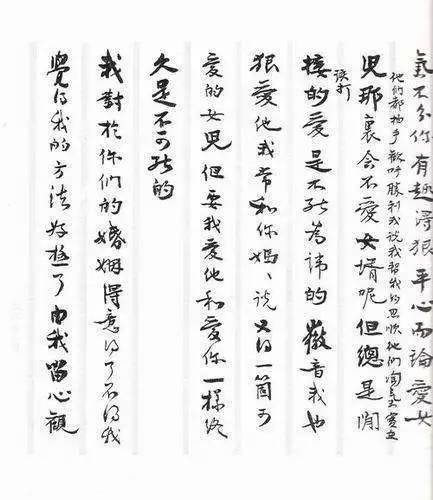 氣不分你有趣得狠平心而論愛女
他們都拍手歡呼勝利我說我幫我的思順他們淘氣實在
該打
兒那裏會不愛女壻呢但總是間
接的愛是不能為諱的徽音我也
狠愛他我常和你媽、說又得一箇可
愛的女兒但要我愛他和愛你一樣終
久是不可能的
我對於你們的婚姻得意得了不得我
覺得我的方法好極了由我留心觀